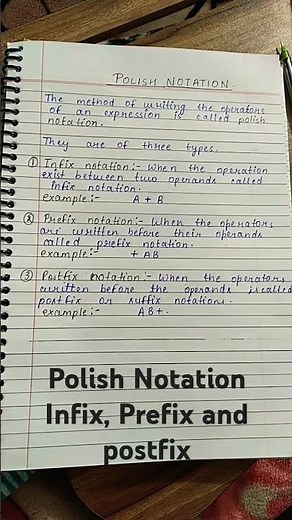 POLISH NOTATION
The method of writing the operators
of an expression is called polish
notation.
They are of three types.
① Infix notation:- When the operation
exist between two operands called
Infix notation.
example:- A + B
② Prefix notation:- When the operators
are written before their operands
called prefix notation.
example:- + AB
③ Postfix notation:- When the operators
written before the operands is called
postfix or suffix notations.
example:- AB+.
Polish Notation
Infix, Prefix and
postfix